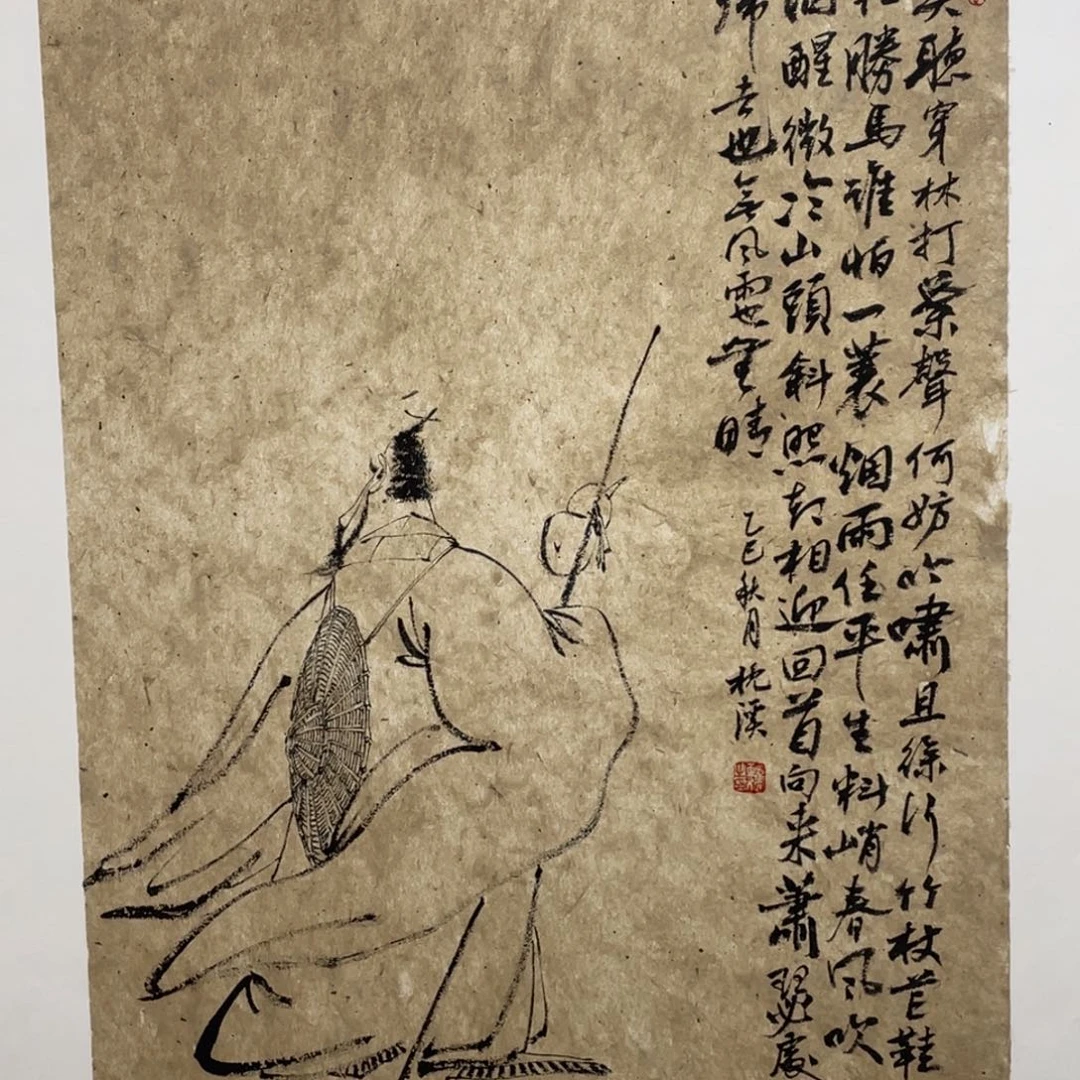 聽穿林打葉聲何妨吟嘯且徐行竹杖芒鞋
勝馬誰怕一蓑烟雨任平生料峭春風吹
酒醒微冷山頭斜照却相迎回首向来蕭瑟處
歸去也無風雨也無晴
乙巳秋月 枕溪